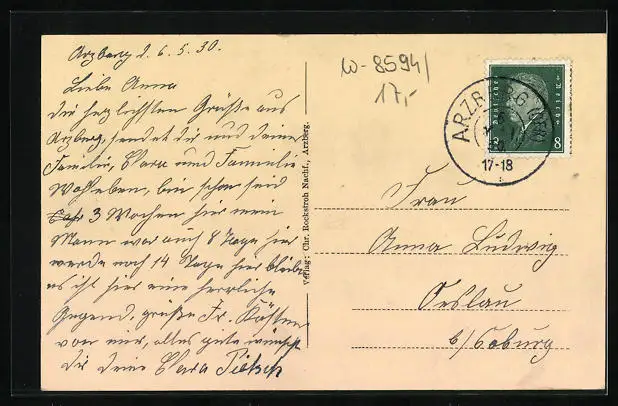 Arzberg 26.5.30.
Liebe Anna
die herzlichsten Grüße aus
Arzberg, sendet dir und deine
Familie, Clara und Familie
Wohleben, bin schon seid
3 Wochen hier mein
Mann war auch 8 Tage hier
werde noch 14 Tage hier bleiben
es ist hier eine herrliche
Gegend, grüße Fr. Köstner
von mir, alles gute wünscht
dir deine Clara
w-8594/
17,-
Deutsches Reich
8 8
ARZBERG
17-18
Verlag: Chr. Rockstroh Nachf., Arzberg.
Frau
Anna Ludwig
Oeslau
b/Coburg